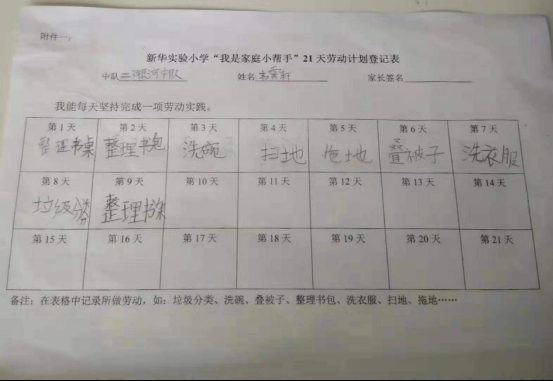 附件一：
新华实验小学“我是家庭小帮手”21天劳动计划登记表
中队二银河中队 姓名 家长签名
我能每天坚持完成一项劳动实践。
第1天 第2天 第3天 第4天 第5天 第6天 第7天
整理书桌 整理书包 洗碗 扫地 拖地 叠被子 洗衣服
第8天 第9天 第10天 第11天 第12天 第13天 第14天
垃圾分类 整理书柜
第15天 第16天 第17天 第18天 第19天 第20天 第21天
备注：在表格中记录所做劳动，如：垃圾分类、洗碗、叠被子、整理书包、洗衣服、扫地、拖地……